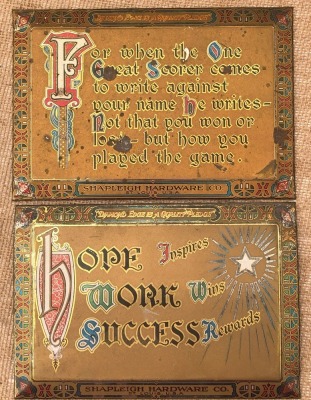 DIAMOND EDGE IS A QUALITY PLEDGE
For when the One
Great Scorer comes
to write against
your name he writes—
Not that you won or
lost— but how you
played the game.
SHAPLEIGH HARDWARE CO.
DIAMOND EDGE IS A QUALITY PLEDGE
hOPE Inspires
WORK Wins
SUCCESS Rewards
SHAPLEIGH HARDWARE CO.